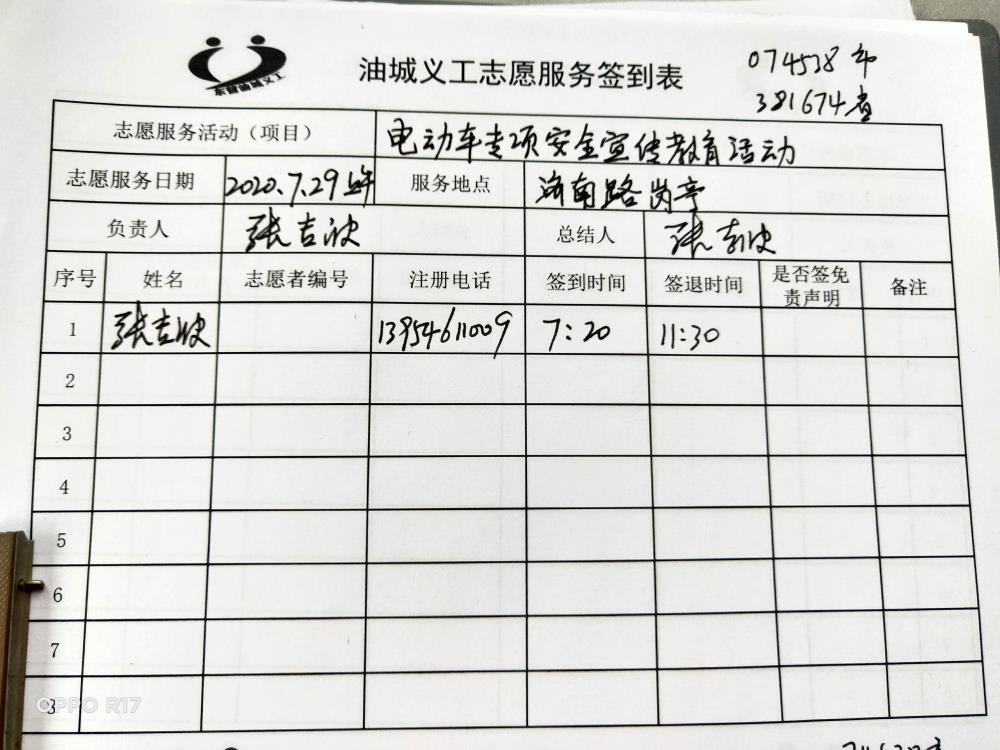 东营油城义工
油城义工志愿服务签到表
074538年
381674省
志愿服务活动（项目） 电动车专项安全宣传教育活动
志愿服务日期 2020.7.29上午 服务地点 南路岗亭
负责人 张吉波 总结人 张吉波
序号 姓名 志愿者编号 注册电话 签到时间 签退时间 是否签免责声明 备注
1 张吉波 13954611009 7:20 11:30
2
3
4
5
6
7
OPPO R17